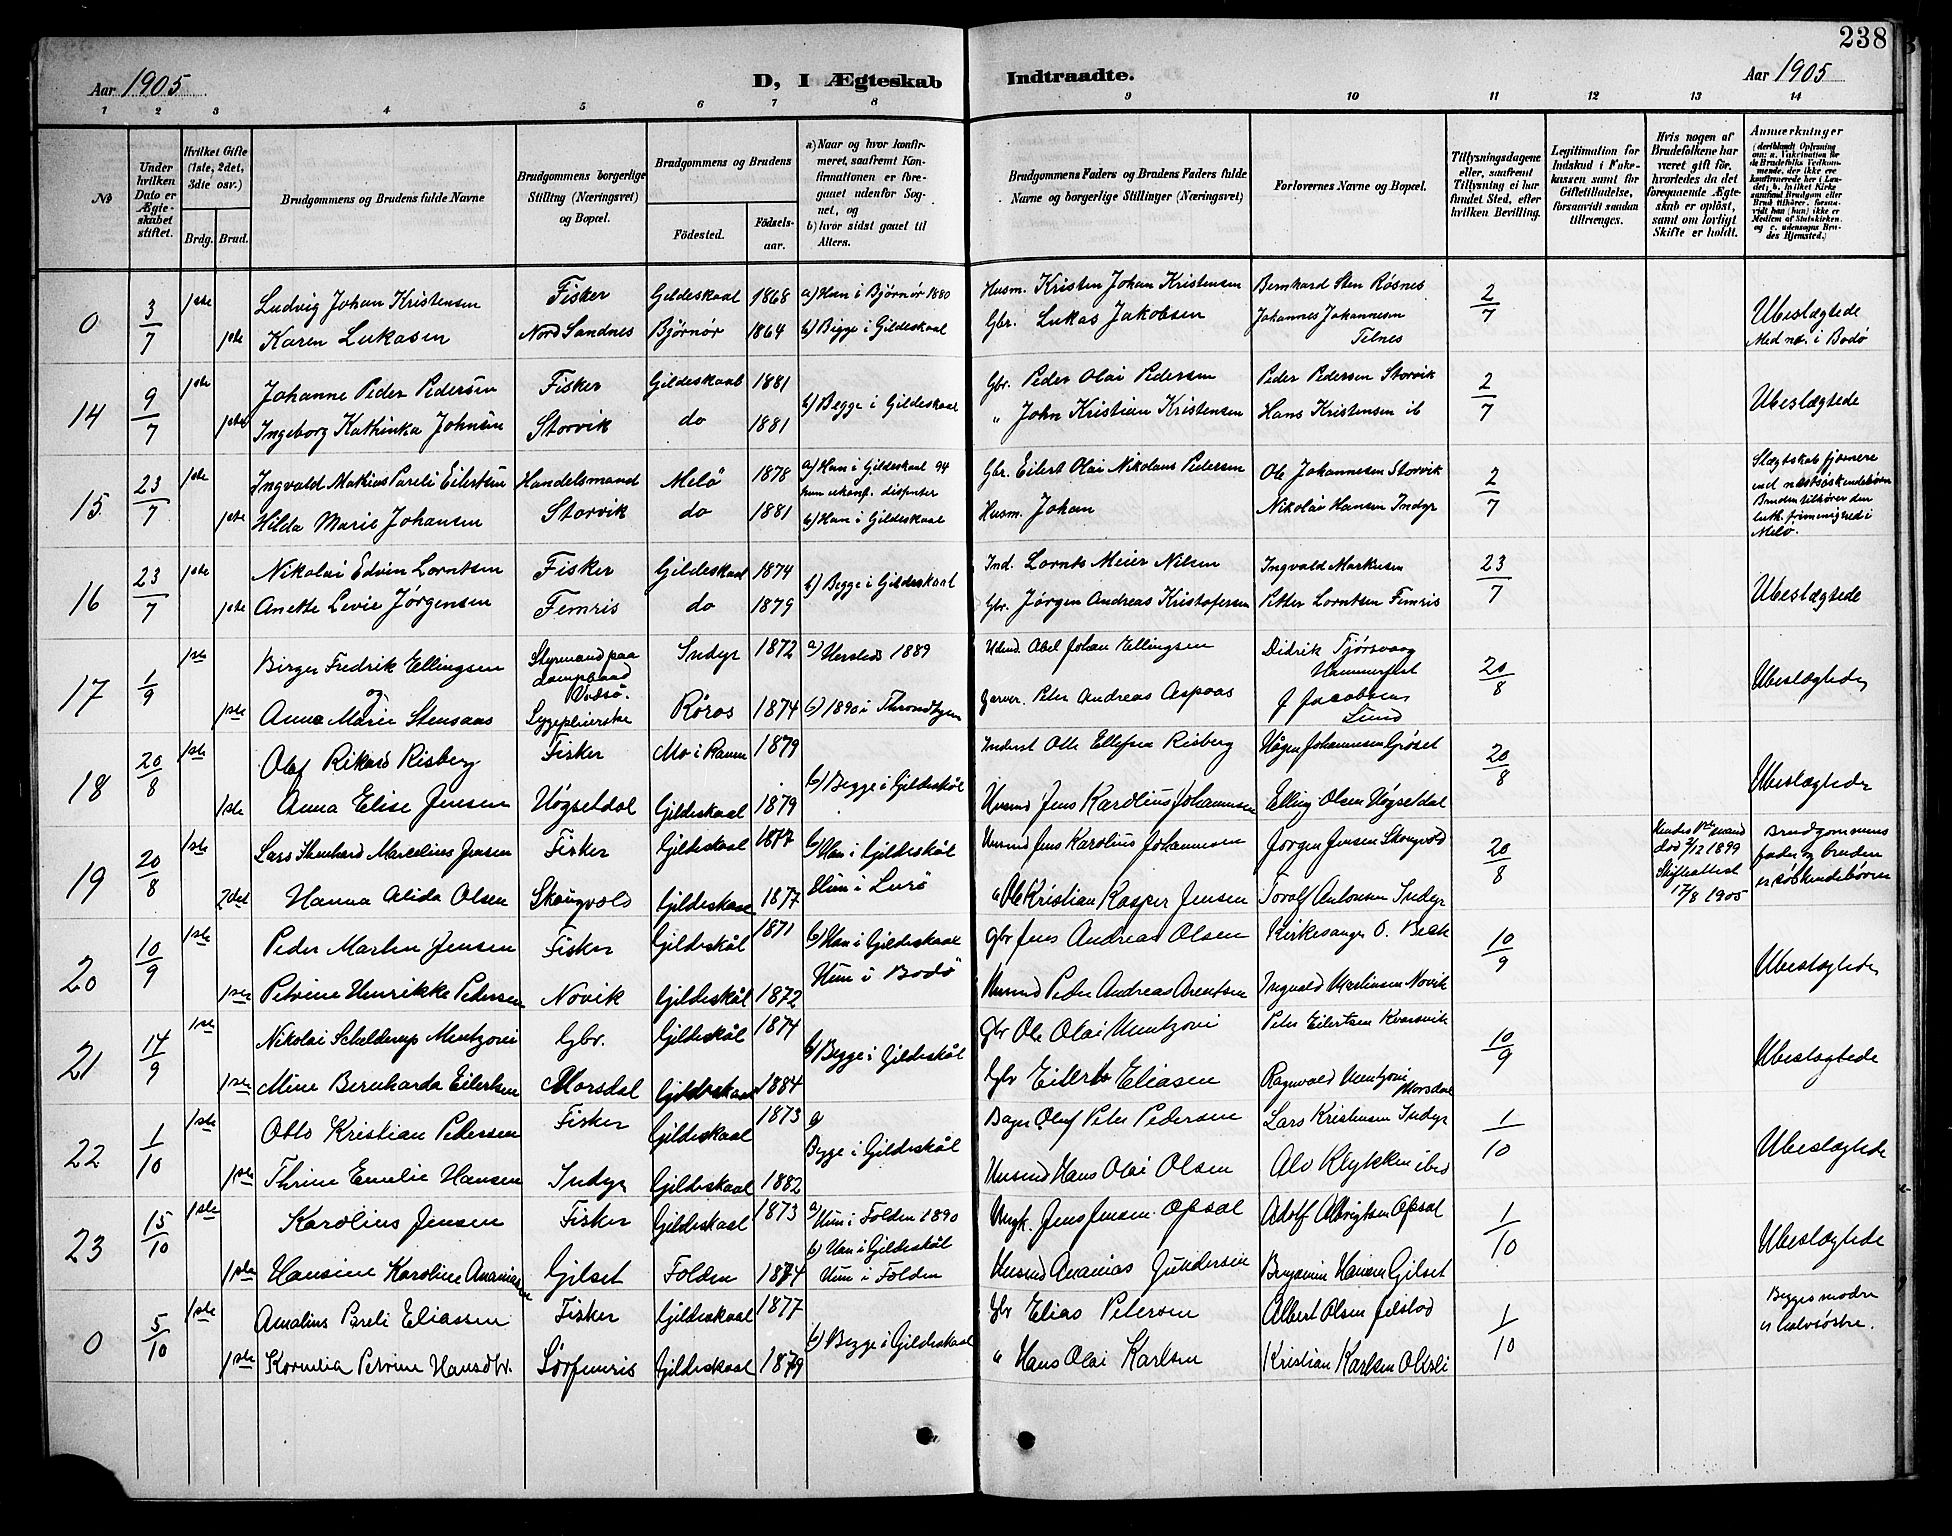 238
Aar 1905
D, I Ægteskab Indtraadte.
Aar 1905
1 2 3 4 5 6 7 8 9 10 11 12 13 14
№
Under hvilken Dato er Ægteskabet stiftet.
Hvilket Gifte (1ste, 2det, 3die osv.)
Brdg. Brud.
Brudgommens og Brudens fulde Navne
Brudgommens borgerlige Stilling (Næringsvei) og Bopæl.
Brudgommens og Brudens
Fødested. Fødselsaar.
a) Naar og hvor konfirmeret, saafremt Konfirmationen er foregaaet udenfor Sognet, og
b) hvor sidst gaaet til Alters.
Brudgommens Faders og Brudens Faders fulde Navne og borgerlige Stillinger (Næringsvei)
Forlovernes Navne og Bopæl.
Tillysningsdagene eller, saafremt Tillysning ei har fundet Sted, efter hvilken Bevilling.
Legitimation for Indskud i Enkekassen samt for Giftetilladelse, forsaavidt saadan tiltrænges.
Hvis nogen af Brudefolkene har været gift før, hvorledes da det foregaaende Ægteskab er opløst, samt om lovligt Skifte er holdt.
Anmærkninger (deriblandt Oplysning om: a. Vakcination for de Brudefolks Vedkommende, der ikke ere konfirmerede her i Landet; b. hvilket Kirkesamfund Brudgom eller Brud tilhører, forsaavidt han (hun) ikke er Medlem af Statskirken, og c. udensogns Brudes Hjemsted.)
0 3/7 1ste Ludvig Johan Kristensen Fisker Gildeskaal 1868 a) Hun i Bjørnør 1880 Husm. Kristen Johan Kristensen Bernhard Sten Røsnes 2/7 Ubeslægtede
1ste Karen Lukasen Nord Sandnes Bjørnør 1864 b) Begge i Gildeskaal Gbr. Lukas Jakobsen Johannes Johannesen Telnes Med næ. i Bodø
14 9/7 1ste Johanne Peder Pedersen Fisker Gildeskaal 1881 b) Begge i Gildeskaal Gbr. Peder Olai Pedersen Peder Pedersen Storvik 2/7 Ubeslægtede
1ste Ingeborg Kathinka Johnsen Storvik do 1881 " John Kristian Kristensen Hans Kristensen ib
15 23/7 1ste Ingvald Mathias Pareli Eilertsen Handelsmand Melø 1878 a) Han i Gildeskaal 94 Gbr. Eilert Olai Nikolaus Pedersen Ole Johannesen Storvik 2/7 Slægtskab fjernere end næstsøskendebørn
hun ukonf. dissenter
1ste Hilda Marie Johansen Storvik do 1881 b) Han i Gildeskaal Husm. Johan Nikolai Hansen Indyr Bruden tilhører den luth. frimenighed i Melø.
16 23/7 1ste Nikolai Edvin Lorntsen Fisker Gildeskaal 1874 b) Begge i Gildeskaal Ind. Lornts Meier Nilsen Ingvald Markusen 23/7 Ubeslægtede
1ste Anette Levie Jørgensen Femris do 1879 Gbr. Jørgen Andreas Kristofersen Petter Lorntsen Femris
17 1/9 1ste Birger Fredrik Ellingsen Styrmand paa Dampbaad Vadsø. Indyr 1872 a) 1889 Abel Johan Ellingsen Didrik Tjørsvaag Hammerfest 20/8 Ubeslægtede
og
1ste Anna Marie Stensaas Sygepleierske Røros 1874 b) 1890 i Throndhjem Garver. Peter Andreas Aspaas J Jacobsen Lund
18 20/8 1ste Olaf Rikard Risberg Fisker Mo i Ranen 1879 b) Begge i Gildeskål Inderst Ole Ellefsen Risberg Hågen Johannesen Grøset 20/8 Ubeslægtede
1ste Anna Elise Jensen Høgsetdal Gildeskaal 1879 Husmd Jens Karolius Johannesen Elling Olsen Høgsetdal
19 20/8 1ste Lars Stenhard Marcelius Jensen Fisker Gildeskaal 1877 b) Han i Gildeskål Husmd Jens Karolius Johannesen Jørgen Jensen Skongvold 20/8 Hendes 1ste mand død 7/12 1899 Skifteattest 17/8 1905 Brudgommens fader og bruden er søskendebörn
2det Hanna Alida Olsen Skongvold Gildeskaal 1877 Hun i Lurø " Ole Kristian Kasper Jensen Torolf Antonsen Indyr
20 10/9 1ste Peder Martin Jensen Fisker Gildeskål 1871 b) Han i Gildeskaal Gbr Jens Andreas Olsen Kirkesanger O. Beck 10/9 Ubeslægtede
1ste Petrine Henrikke Pedersen Novik Gildeskål 1872 Hun i Bodø Husmd Peder Andreas Arentsen Ingvald Martinsen Novik
21 14/9 1ste Nikolai Schelderup Mentzoni Gbr. Gildeskål 1874 b) Begge i Gildeskål Gbr Ole Olai Mentzoni Peter Eilertsen Kvarsvik 10/9 Ubeslægtede
1ste Mine Bernharda Eilertsen Morsdal Gildeskaal 1884 Gbr Eilert Eliasen Ragnvald Mentzoni Morsdal
22 1/10 1ste Otto Kristian Pedersen Fisker Gildeskaal 1873 Begge i Gildeskål Bager Oluf Peter Pedersen Lars Kristensen Indyr 1/10 Ubeslægtede
1ste Thrine Emelie Hansen Indyr Gildeskaal 1882 Husmd Hans Olai Olsen Alv Klykken ibid
23 15/10 1ste Karolius Jensen Fisker Gildeskaal 1873 a) Hun i Folden 1890 Ungk. Jens Jensen Opsal Adolf Albrigtsen Opsal 1/10 Ubeslægtede
b) Han i Gildeskål
1ste Hansine Karoline Ananiasen Gilset Folden 1874 Hun i Folden Husmd Ananias Gundersen Benjamin Hansen Gilset
0 5/10 1ste Amalius Pareli Eliassen Fisker Gildeskaal 1877 b) Begge i Gildeskaal Gbr Elias Petersen Albert Olsen Jelstad 1/10 Begges modre er halvsøstre.
1ste Kornelia Petrine Hansdtr. Sørfemris Gildeskaal 1879 " Hans Olai Karlsen Kristian Karlsen